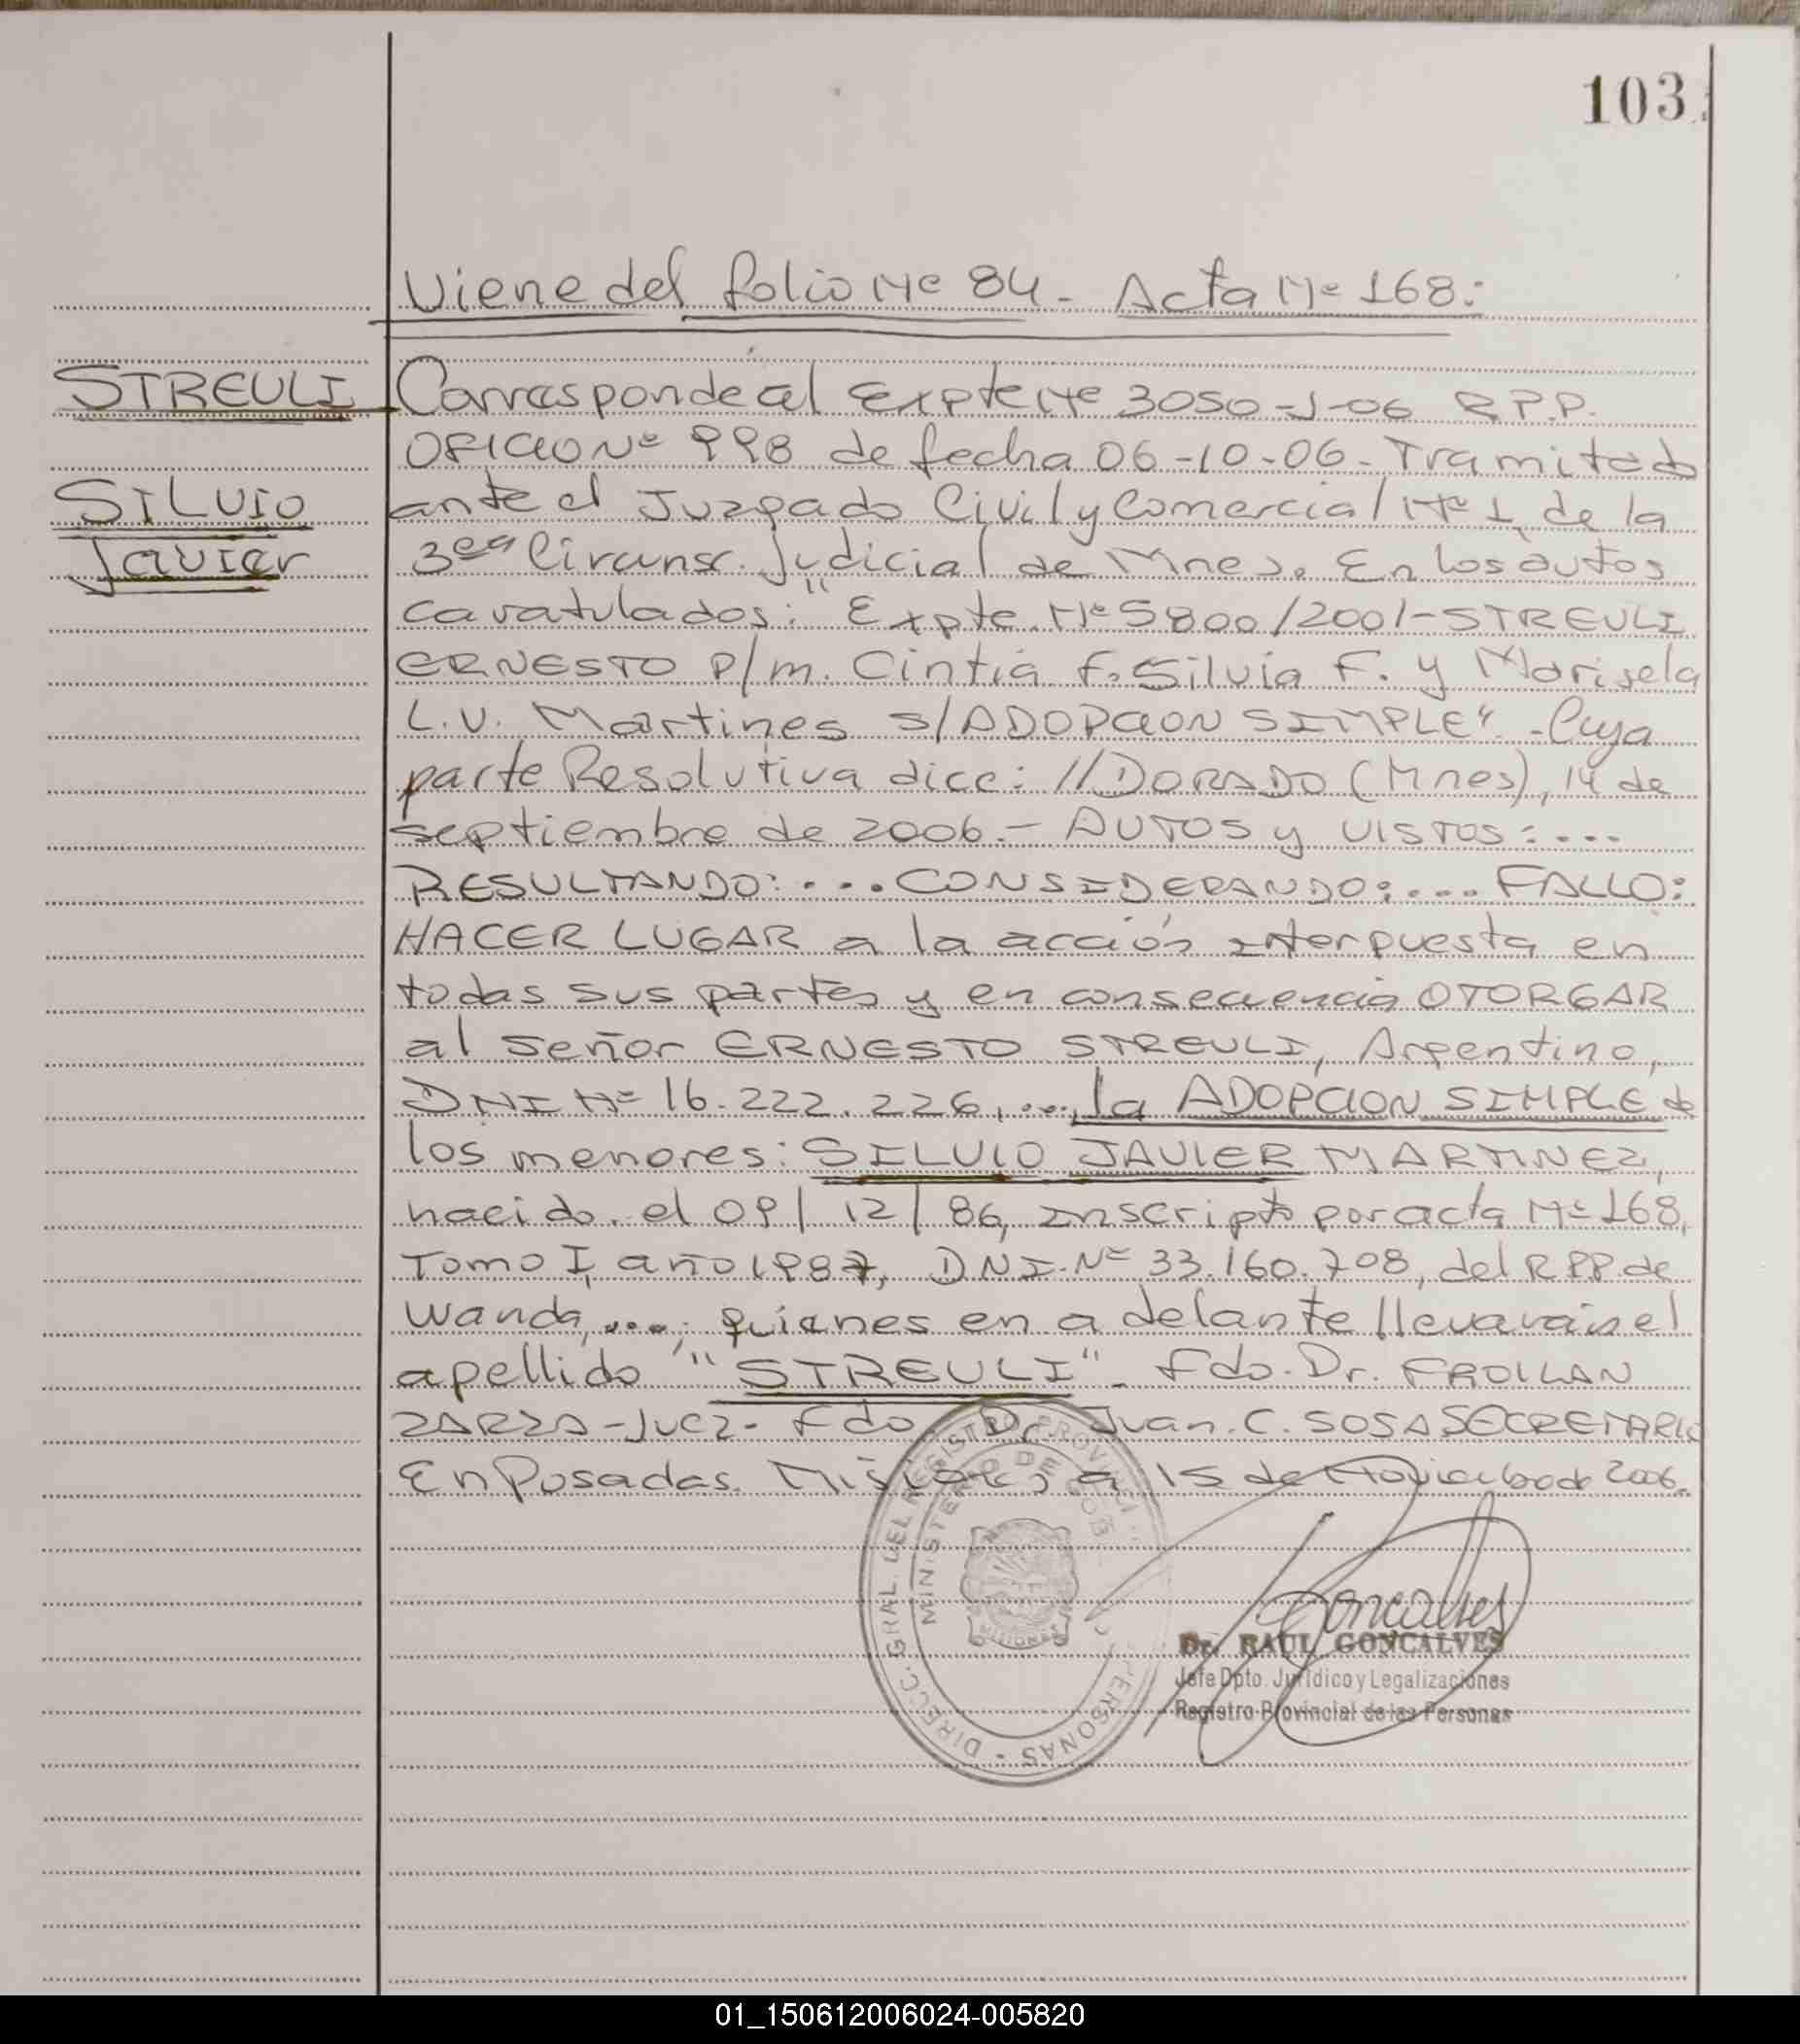 103
Viene del folio Nº 84 - Acta Nº 168:
STREULI
SILVIO
Javier
Corresponde al Expte Nº 3050-J-06 R.P.P.
OFICIO Nº 998 de fecha 06-10-06. Tramitado
ante el Juzgado Civil y Comercial Nº 1, de la
3era Circunsc. Judicial de Mnes. En los autos
caratulados: "Expte. Nº 5800/2001-STREULI
ERNESTO p/m. Cintia F. Silvia F. y Marisela
L.V. Martines s/ADOPCION SIMPLE" - Cuya
parte Resolutiva dice: //DORADO (Mnes), 14 de
septiembre de 2006.- AUTOS y VISTOS: ...
RESULTANDO: ... CONSIDERANDO: ... FALLO:
HACER LUGAR a la acción interpuesta en
todas sus partes y en consecuencia OTORGAR
al señor ERNESTO STREULI, Argentino,
DNI Nº 16.222.226, ..., la ADOPCION SIMPLE de
los menores: SILVIO JAVIER MARTINEZ,
nacido el 09/12/86, Inscripto por acta Nº 168,
Tomo I, año 1987, DNI. Nº 33.160.708, del R.P.P. de
Wanda, ...; quienes en adelante llevarán el
apellido "STREULI". Fdo. Dr. FROILAN
ZARZA-Juez- Fdo Dr. Juan. C. SOSA SECRETARIO
En Posadas. Misiones, a 15 de Noviembre de 2006.
DIRECC. GRAL. DEL REGISTRO PROVINCI PERSONAS
MINISTERIO DE GOB
MISIONES
Goncalves
Dr. RAUL GONCALVES
Jefe Dpto. Jurídico y Legalizaciones
Registro Provincial de las Personas
01_150612006024-005820